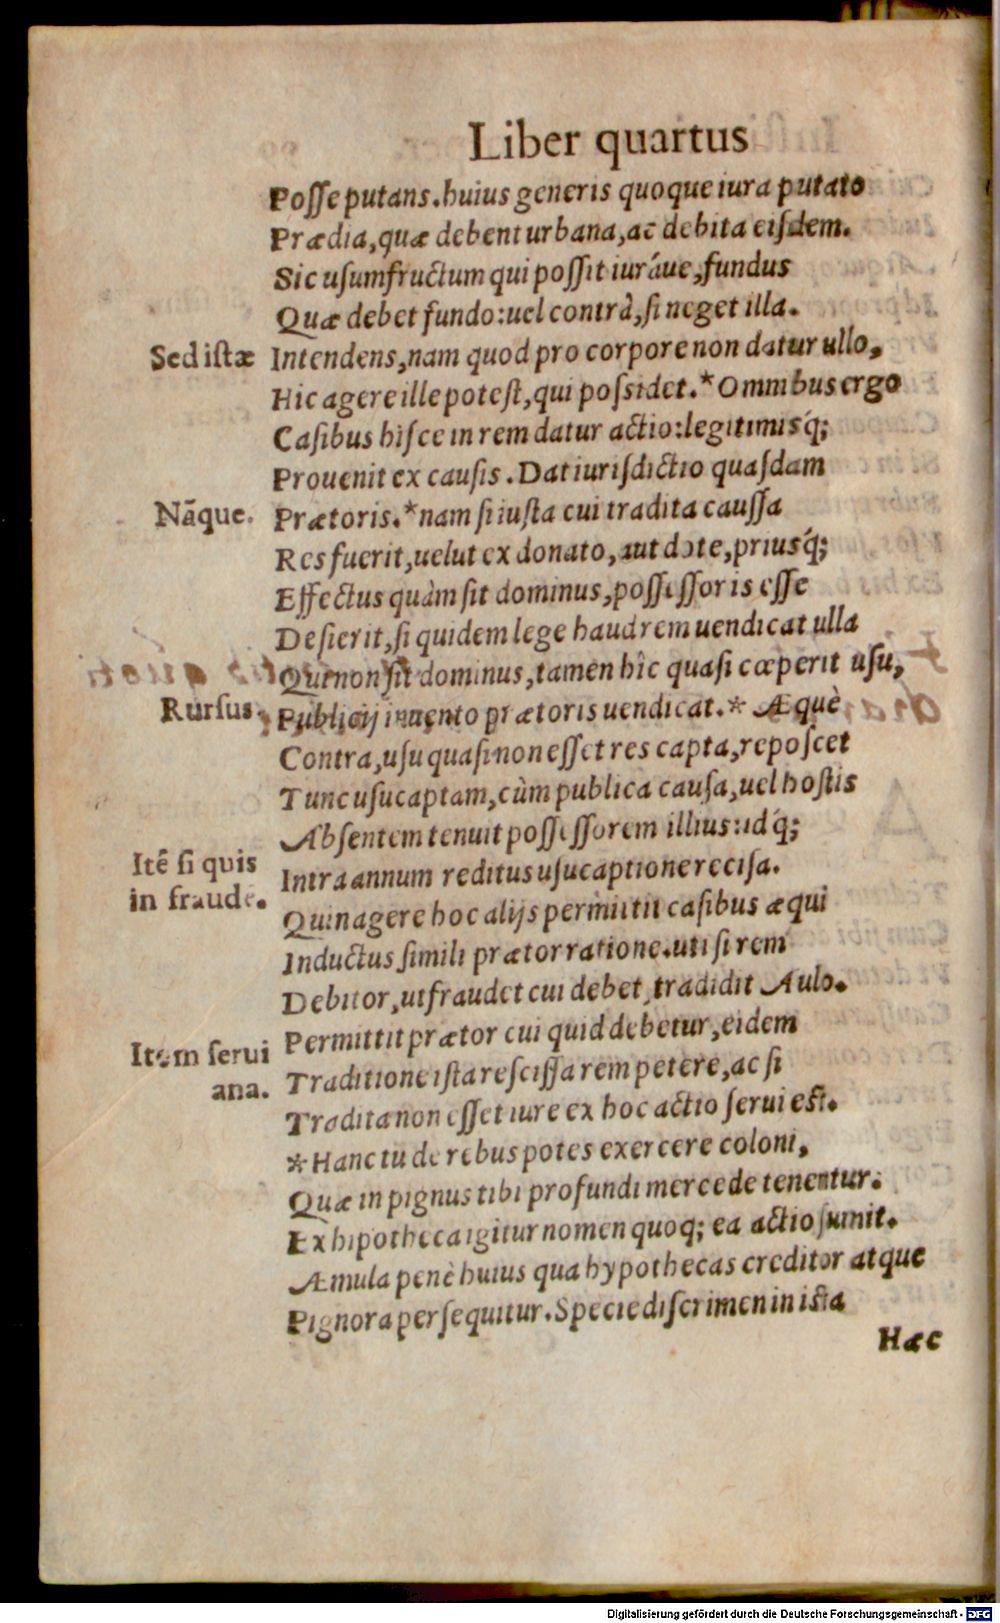 Liber quartus
Posse putans. huius generis quoque iura putato
Prædia, quæ debent urbana, ac debita eisdem.
Sic usumfructum qui possit iuráue, fundus
Quæ debet fundo: uel contrà, si neget illa.
Sed istæ
Intendens, nam quod pro corpore non datur ullo,
Hic agere ille potest, qui possidet. * Omnibus ergo
Casibus hisce in rem datur actio: legitimisq́;
Prouenit ex causis. Dat iurisdictio quasdam
Nāque.
Prætoris. * nam si iusta cui tradita caussa
Res fuerit, uelut ex donato, aut dote, priusq́;
Effectus quàm sit dominus, possessor is esse
Desierit, si quidem lege haud rem uendicat ulla
Qui non sit dominus, tamen hîc quasi cœperit usu,
Rursus.
Publicij inuento prætoris uendicat. * Æquè
Contra, usu quasi non esset res capta, reposcet
Tunc usucaptam, cùm publica causa, uel hostis
Absentem tenuit possessorem illius: idq́;
Itē si quis
in fraude.
Intra annum reditus usucaptione recisa.
Quin agere hoc alijs permittit casibus æqui
Inductus simili prætor ratione. uti si rem
Debitor, ut fraudet cui debet, tradidit Aulo.
Item serui
ana.
Permittit prætor cui quid debetur, eidem
Traditione ista rescissa rem petere, ac si
Tradita non esset iure ex hoc actio serui est.
* Hanc tu de rebus potes exercere coloni,
Quæ in pignus tibi pro fundi mercede tenentur.
Ex hipotheca igitur nomen quoq; ea actio sumit.
Æmula penè huius qua hypothecas creditor atque
Pignora persequitur. Specie discrimen in ista
Hæc
Digitalisierung gefördert durch die Deutsche Forschungsgemeinschaft - DFG